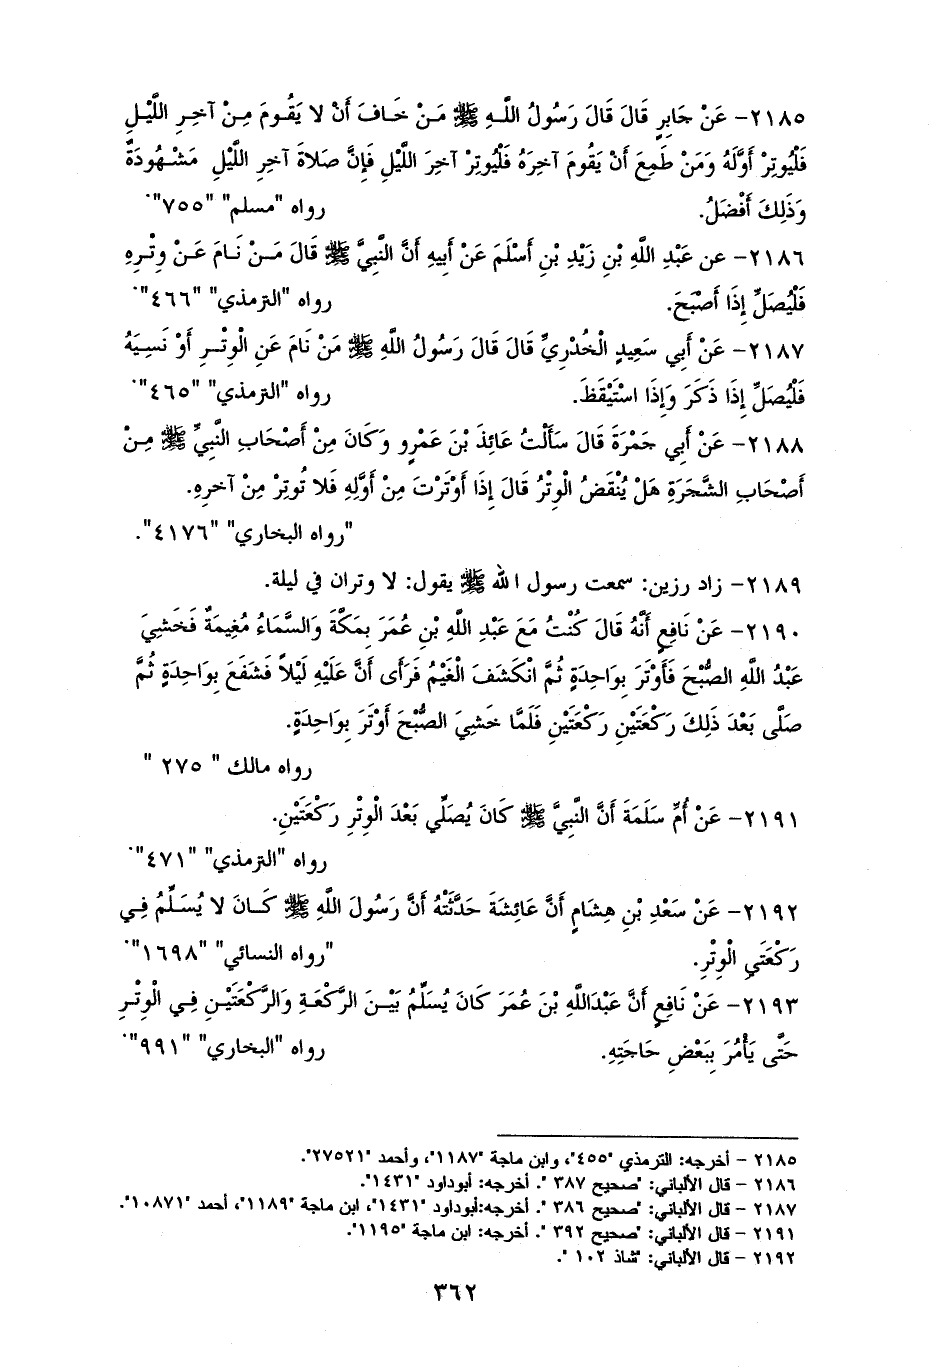 ٢١٨٥- عَنْ جَابِرٍ قَالَ قَالَ رَسُولُ اللَّـهِ ﷺ مَـنْ خَـافَ أَنْ لا يَقُـومَ مِـنْ آخِـرِ اللَّيْـلِ
فَلْيُوتِرْ أَوَّلَهُ وَمَنْ طَمِعَ أَنْ يَقُومَ آخِرَهُ فَلْيُوتِرْ آخِرَ اللَّيْلِ فَإِنَّ صَلاةَ آخِرِ اللَّيْلِ مَشْـهُودَةٌ
وَذَلِكَ أَفْضَلُ. رواه "مسلم" "٧٥٥".
٢١٨٦- عن عَبْدِ اللَّهِ بْنِ زَيْدِ بْنِ أَسْلَمَ عَنْ أَبِيهِ أَنَّ النَّبِيَّ ﷺ قَالَ مَـنْ نَـامَ عَـنْ وِتْـرِهِ
فَلْيُصَلِّ إِذَا أَصْبَحَ. رواه "الترمذي" "٤٦٦".
٢١٨٧- عَنْ أَبِي سَعِيدٍ الْخُدْرِيِّ قَالَ قَالَ رَسُولُ اللَّهِ ﷺ مَنْ نَامَ عَنِ الْوِتْـرِ أَوْ نَسِـيَهُ
فَلْيُصَلِّ إِذَا ذَكَرَ وَإِذَا اسْتَيْقَظَ. رواه "الترمذي" "٤٦٥".
٢١٨٨- عَنْ أَبِي جَمْرَةَ قَالَ سَأَلْتُ عَائِذَ بْنَ عَمْرٍو وَكَانَ مِنْ أَصْحَابِ النَّبِيِّ ﷺ مِـنْ
أَصْحَابِ الشَّجَرَةِ هَلْ يُنْقَضُ الْوِتْرُ قَالَ إِذَا أَوْتَرْتَ مِنْ أَوَّلِهِ فَلا تُوتِرْ مِنْ آخرِهِ.
"رواه البخاري" "٤١٧٦".
٢١٨٩- زاد رزين: سمعت رسول الله ﷺ يقول: لا وتران في ليلة.
٢١٩٠- عَنْ نَافِعٍ أَنَّهُ قَالَ كُنْتُ مَعَ عَبْدِ اللَّهِ بْنِ عُمَرَ بِمَكَّةَ وَالسَّمَاءُ مُغِيمَةٌ فَخَشِيَ
عَبْدُ اللَّهِ الصُّبْحَ فَأَوْتَرَ بِوَاحِدَةٍ ثُمَّ انْكَشَفَ الْغَيْمُ فَرَأَى أَنَّ عَلَيْهِ لَيْلاً فَشَفَعَ بِوَاحِدَةٍ ثُمَّ
صَلَّى بَعْدَ ذَلِكَ رَكْعَتَيْنِ رَكْعَتَيْنِ فَلَمَّا خَشِيَ الصُّبْحَ أَوْتَرَ بِوَاحِدَةٍ.
رواه مالك " ٢٧٥ "
٢١٩١- عَنْ أُمِّ سَلَمَةَ أَنَّ النَّبِيَّ ﷺ كَانَ يُصَلِّي بَعْدَ الْوِتْرِ رَكْعَتَيْنِ.
رواه "الترمذي" "٤٧١".
٢١٩٢- عَنْ سَعْدِ بْنِ هِشَامٍ أَنَّ عَائِشَةَ حَدَّثَتْهُ أَنَّ رَسُولَ اللَّهِ ﷺ كَـانَ لا يُسَـلِّمُ فِـي
رَكْعَتَيِ الْوِتْرِ. "رواه النسائي" "١٦٩٨".
٢١٩٣- عَنْ نَافِعٍ أَنَّ عَبْدَاللَّهِ بْنَ عُمَرَ كَانَ يُسَلِّمُ بَيْـنَ الرَّكْعَـةِ وَالرَّكْعَتَيْـنِ فِـي الْوِتْـرِ
حَتَّى يَأْمُرَ بِبَعْضِ حَاجَتِهِ. رواه "البخاري" "٩٩١".
٢١٨٥ - أخرجه: الترمذي "٤٥٥"، وابن ماجة "١١٨٧"، وأحمد "٢٧٥٢١".
٢١٨٦ - قال الألباني: "صحيح ٣٨٧ ". أخرجه: أبوداود "١٤٣١".
٢١٨٧ - قال الألباني: "صحيح ٣٨٦ ". أخرجه:أبوداود "١٤٣١"، ابن ماجة "١١٨٩"، أحمد "١٠٨٧١".
٢١٩١ - قال الألباني: "صحيح ٣٩٢ ". أخرجه: ابن ماجة "١١٩٥".
٢١٩٢ - قال الألباني: "شاذ ١٠٢ ".
٣٦٢